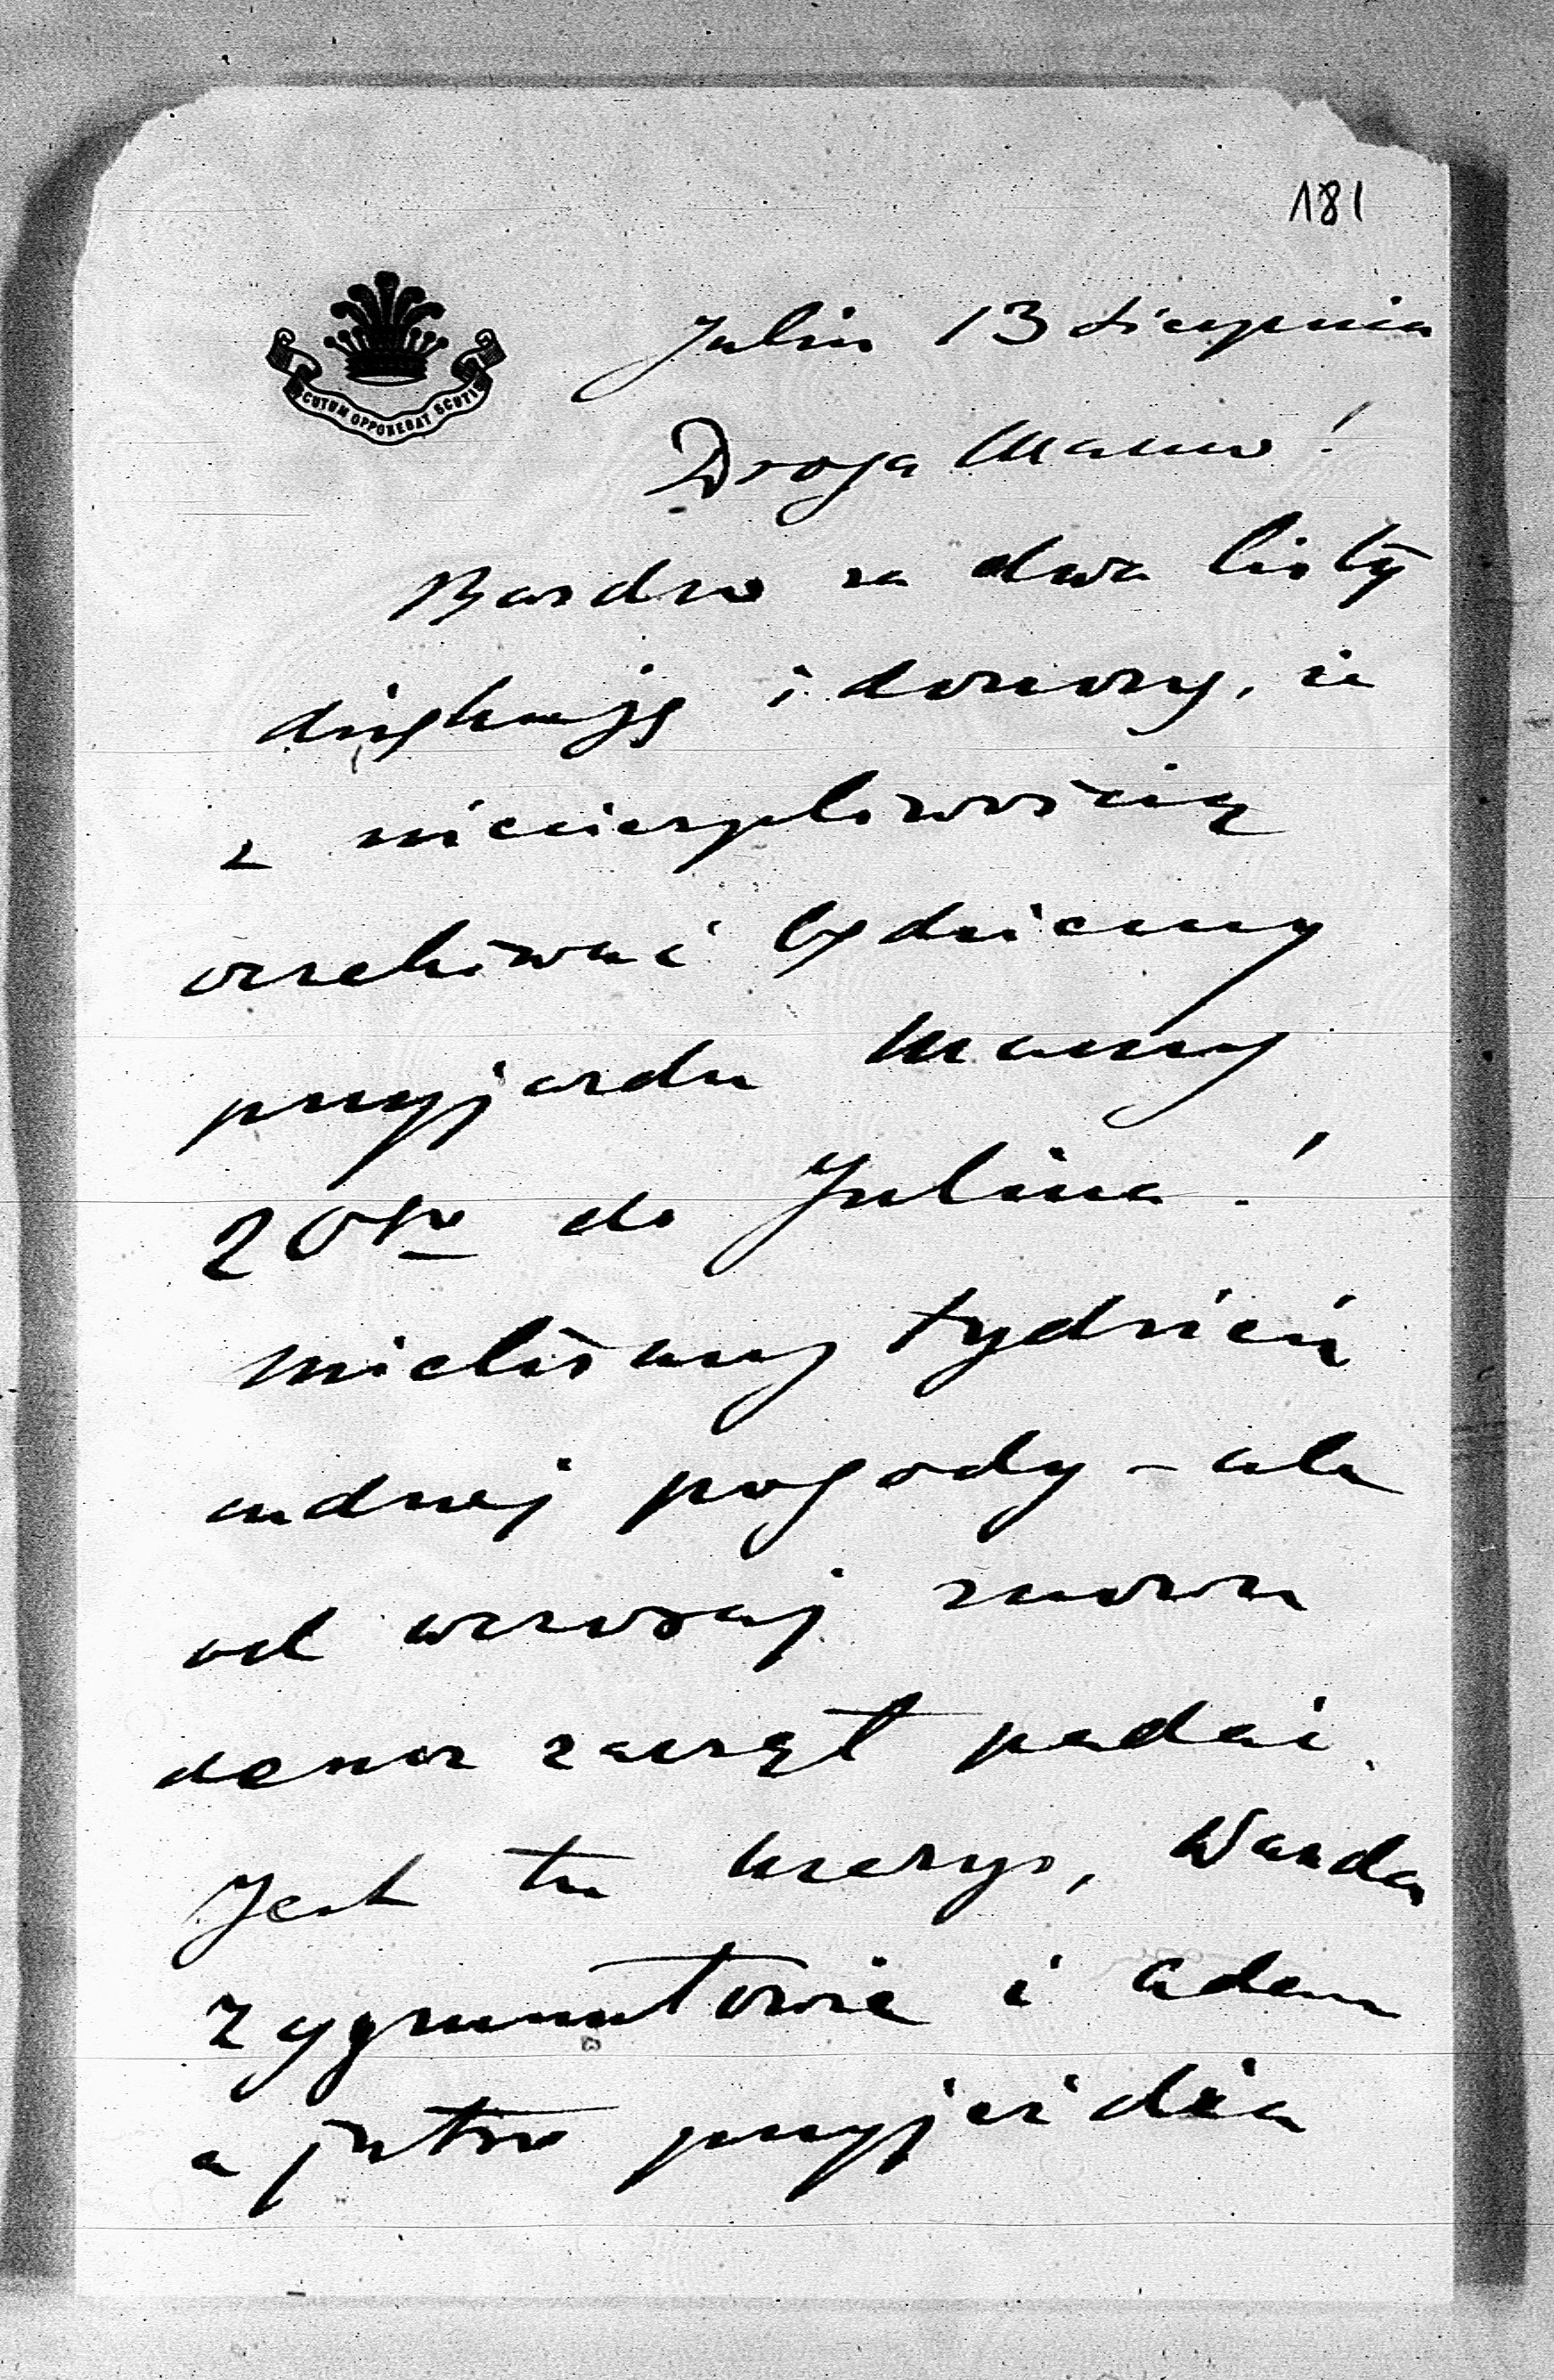 181
SCUTUM OPPONEBAT SCUTIS
Julin 13 Sierpnia
Droga Mamo!
Bardzo za dwa listy
dziękuję i donoszę, że
z niecierpliwością
oczekiwać będziemy
przyjazdu Mamy
20go do Julina!
Mieliśmy tydzień
cudnej pogody – ale
od wczoraj znowu
deszcz zaczął padać.
Jest tu Krzyś, Wanda
Zygmuntowie i Adam
a jutro przyjeżdża